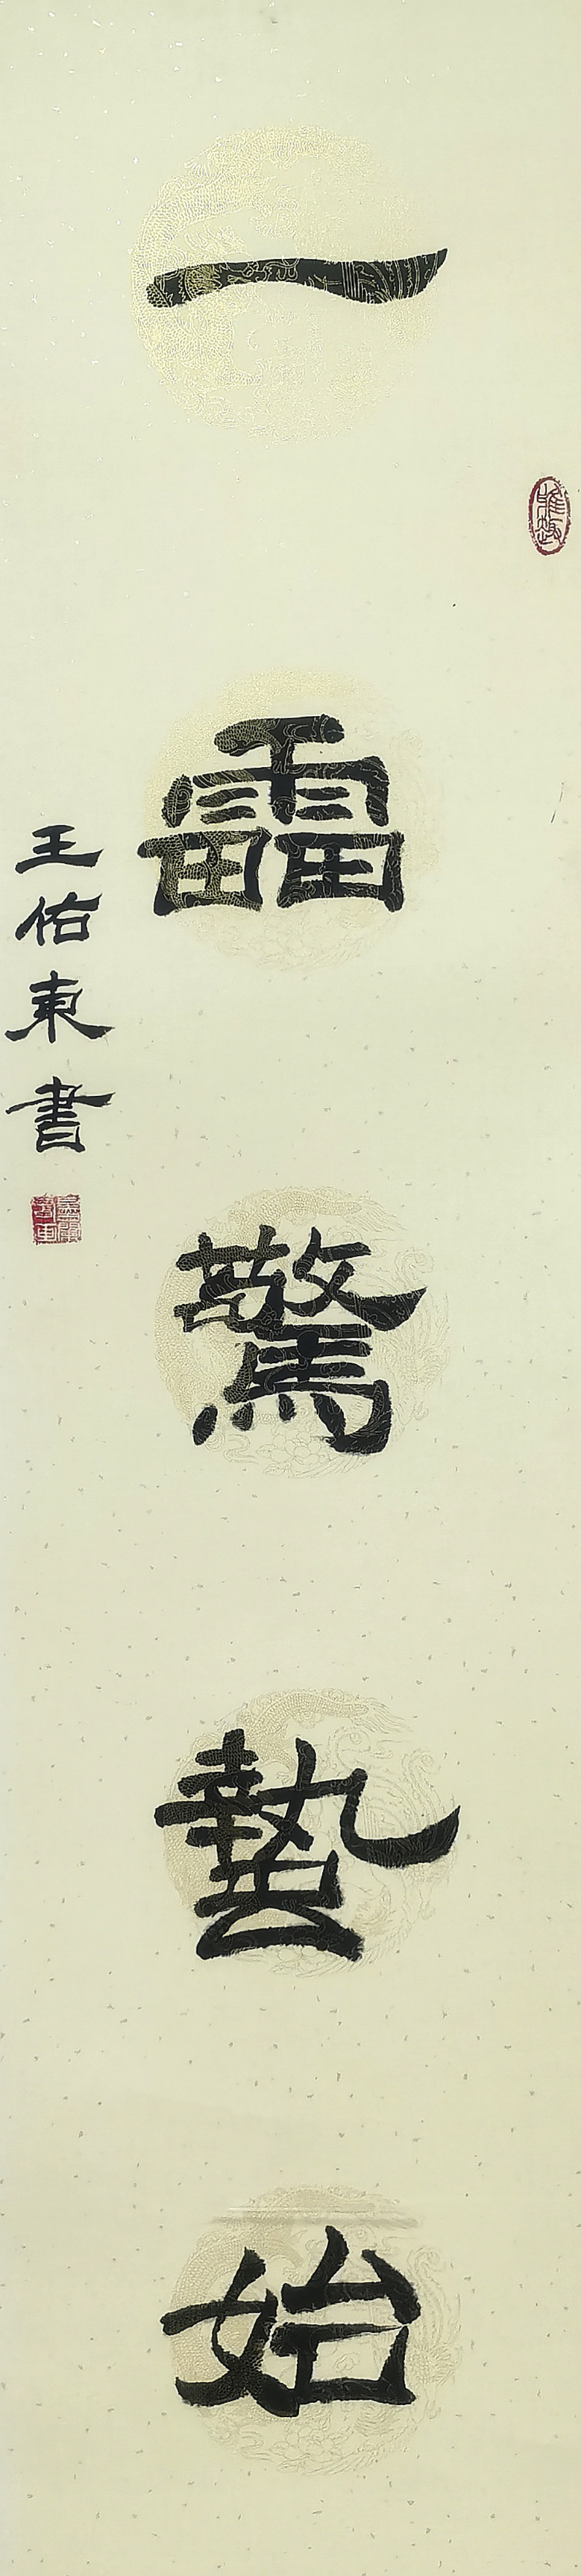 雅趣
一雷驚蟄始
王佑東書